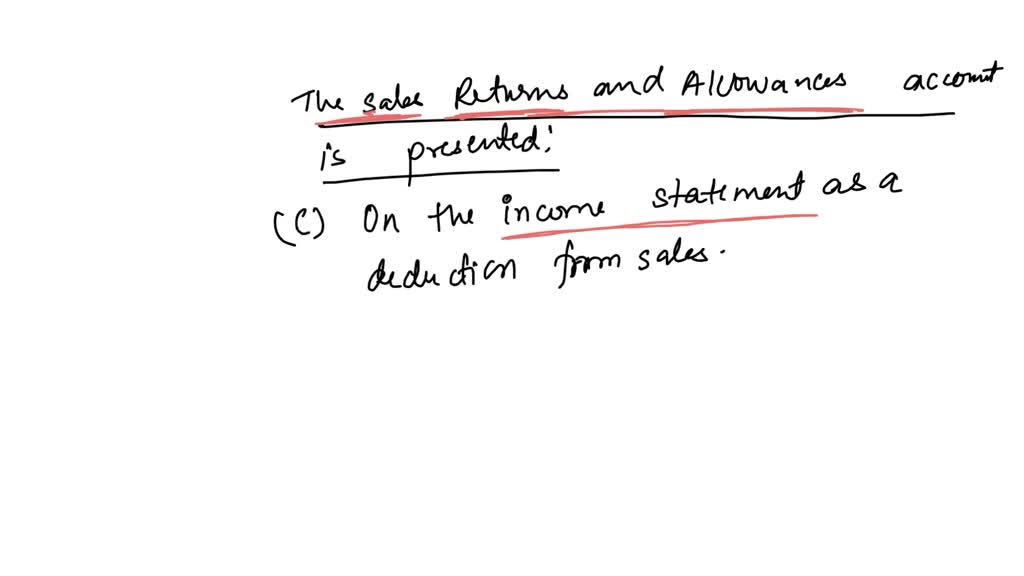 The sales Returns and Allowances account
is presented:
(C) On the income statement as a
deduction from sales.